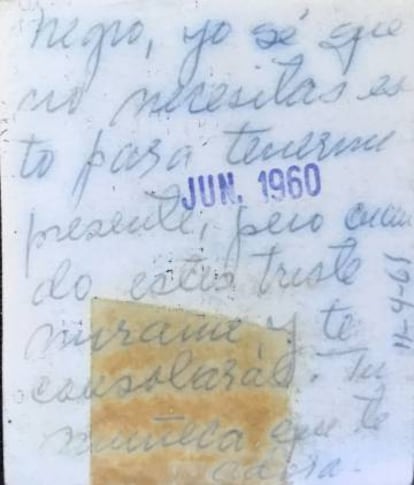 negro, yo sé que
no necesitas es
to para tenerme
JUN. 1960
presente, pero cuan
do estes triste
mirame y te
consolarás. Tu
muñeca que te
adora.
11-4-61